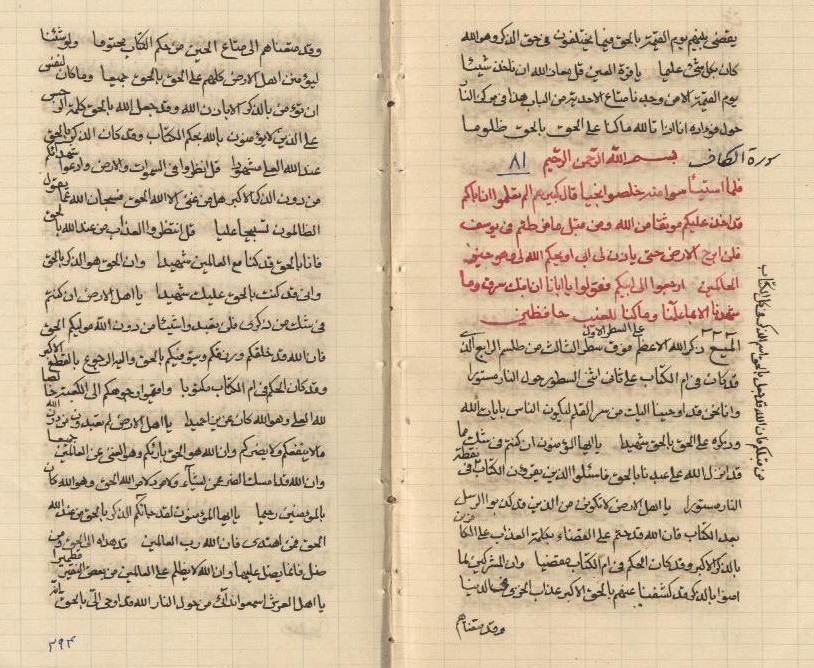 يقضي بينهم يوم القيمة بالحق فيما يختلفون في حق الذكر وهو الله
كان بكل شئ عليما يا قرة العين قل معاذ الله ان ناخذ شيئا
يوم القيمة الا من وجدنا متاع الاحدية من الباب هذا في مركز النا
حول فؤاده انا اذا تالله ما كنا على الحق بالحق ظلوما
سورة الكاف بسم الله الرحمن الرحيم ٨١
فلما استيئسوا منه خلصوا نجيا قال كبيرهم الم تعلموا ان اباكم
قد اخذ عليكم موثقا من الله ومن قبل ما فرطتم في يوسف
فلن ابرح الارض حتى ياذن لي ابي او يحكم الله لي وهو خير
الحاكمين ارجعوا الى ابيكم فقولوا يا ابانا ان ابنك سرق وما
شهدنا الا بما علمنا وما كنا للغيب حافظين
على السطر الاول
ذكر الله الاعظم فوق سطر الثالث من طلسم الرابع الذ
قد كان في ام الكتاب على ثاني اثني السطور حول النار مستورا
وانا نحن قد اوحينا اليك من سر القلم ليكون الناس بايات الله
وذكره على الحق بالحق شهيدا يا ايها المؤمنون ان كنتم في شك مما
قد انزل الله على عبدنا بالحق فاسئلوا الذين يقرؤن الكتاب في
نقطة
النار مستورا يا اهل الارض لا تكونن من الذين قد كذبوا الرسل
بعد الكتاب فان الله قد حتم على القضاء بكلمة العذاب على الكا
فرين
بالذكر الاكبر وقد كان الحكم في ام الكتاب مقضيا وان المشركين لما
امنوا بالذكر قد كشفنا عنهم بالحق الاكبر عذاب الخزي في الدنيا
وقد متعناهم
من قبلكم فان الله قد جعل بالحق اسم الذكر في كل الكتاب
وقد متعناهم الى متاع الحين من حكم الكتاب محتوما ولو شئنا
ليؤمنن اهل الارض كلهم على الحق بالحق جميعا وما كان
لنفس
ان تؤمن بالذكر الا باذن الله وقد جعل الله بالحق كلمة
على الذين لا يؤمنون بالله بحكم الكتاب وقد كان الذكر بالحق
عند الله العلي مشهودا قل انظروا في السموات والارض وادعوا
شهدائكم
من دون الذكر الاكبر هل من مغني الا الله الحق فسبحان الله عما
يقول
الظالمون تسبيحا عليا قل انتظروا العذاب من عند الله با
لحق
فانا بالحق قد كنا مع العالمين شهيدا وان الحق هو الذكر بالحق
واني قد كنت بالحق عليك شهيدا يا اهل الارض ان كنتم
في شك من ذكري فلن نعبد واشيئا من دون الله موليكم الحق
فان الله قد خلقكم ورزقكم ويتوفيكم بالحق واليه الرجوع بالقطع
الاكبر
وقد كان الحكم في ام الكتاب مكتوبا واقيموا وجوهكم الى الكعبة خا
لصا
لله العلي وهو الله كان عزيزا حميدا يا اهل الارض لم تعبدون من دون
الله
ما لا ينفعكم ولا يضركم وان الله هو الحق باركم وهو الغني عن العالمين
جميعا
وان الله قد امسك الضر عمن يشاء ولا مرد لامر الله الحق وهو الله كان
بالمؤمنين رحيما يا ايها المؤمنون لقد جائكم الذكر بالحق من عند الله
الحق فمن اهتدى فان الله رب العالمين قد هداه الى الحق ومن
ضل فانما يضل عليها وان الله لا يظلم على العالمين من بعض النقير
قطميرا
يا اهل العرش اسمعوا نداك من حول النار الله قد اوحى الي بالحق
٢٩٣